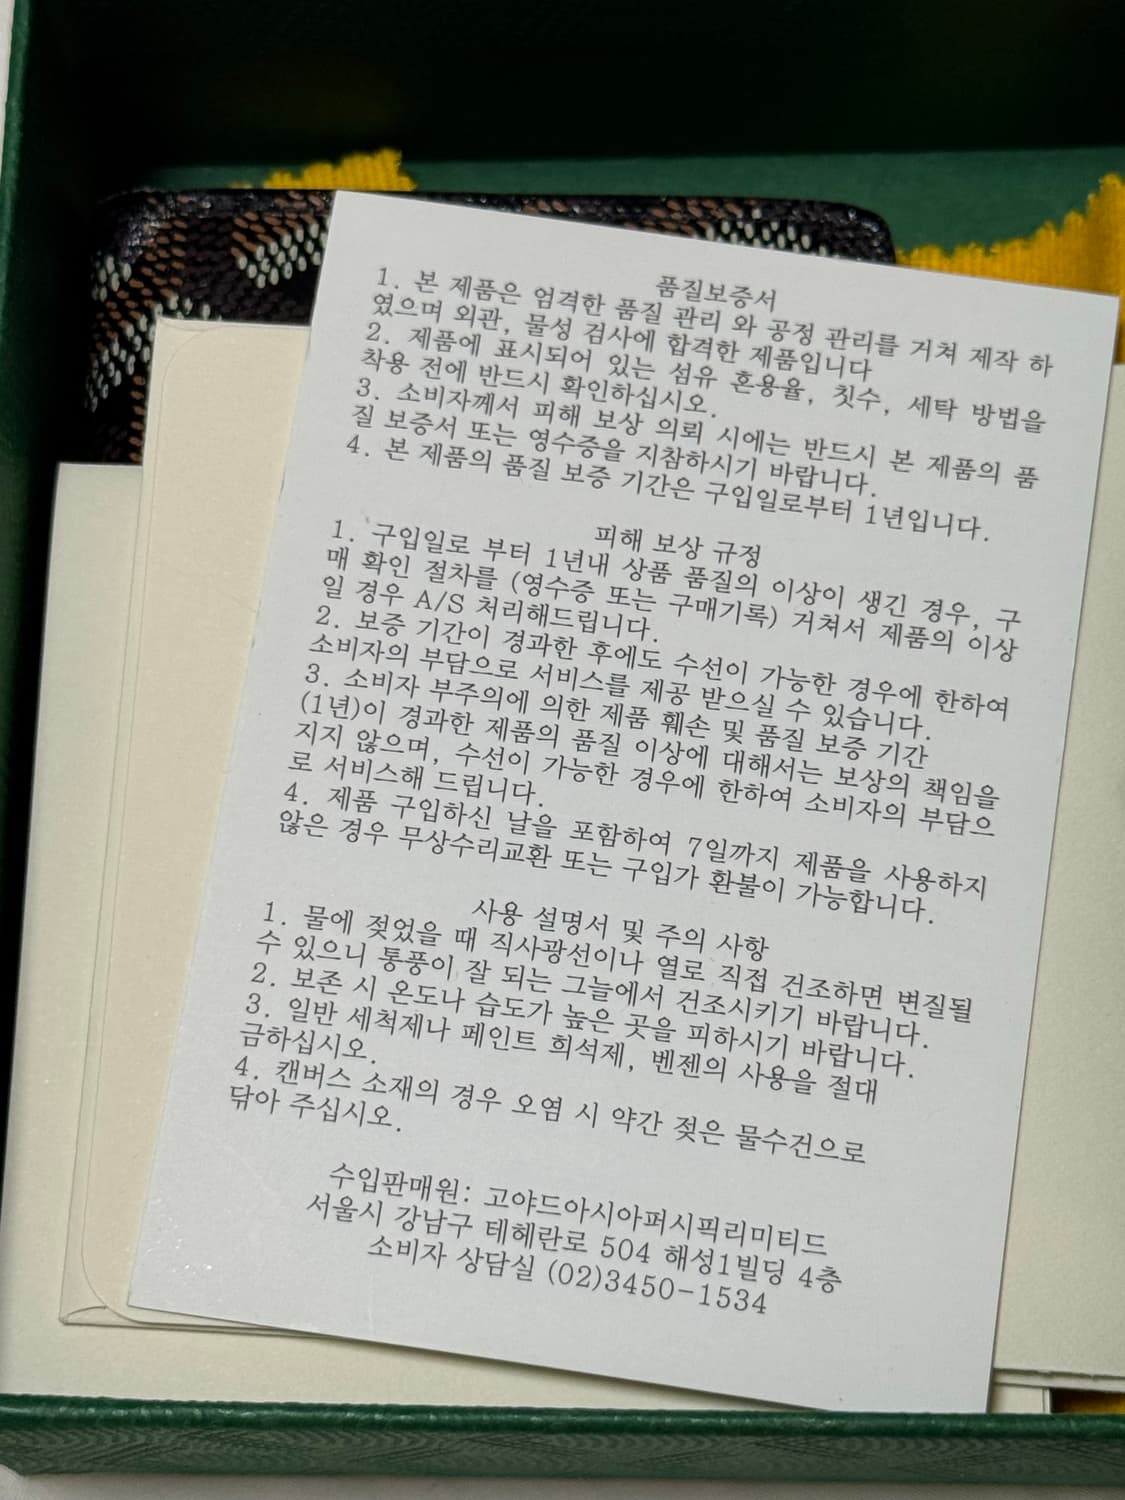 품질보증서
1. 본 제품은 엄격한 품질 관리 와 공정 관리를 거쳐 제작 하
였으며 외관, 물성 검사에 합격한 제품입니다
2. 제품에 표시되어 있는 섬유 혼용율, 칫수, 세탁 방법을
착용 전에 반드시 확인하십시오.
3. 소비자께서 피해 보상 의뢰 시에는 반드시 본 제품의 품
질 보증서 또는 영수증을 지참하시기 바랍니다.
4. 본 제품의 품질 보증 기간은 구입일로부터 1년입니다.
피해 보상 규정
1. 구입일로 부터 1년내 상품 품질의 이상이 생긴 경우, 구
매 확인 절차를 (영수증 또는 구매기록) 거쳐서 제품의 이상
일 경우 A/S 처리해드립니다.
2. 보증 기간이 경과한 후에도 수선이 가능한 경우에 한하여
소비자의 부담으로 서비스를 제공 받으실 수 있습니다.
3. 소비자 부주의에 의한 제품 훼손 및 품질 보증 기간
(1년)이 경과한 제품의 품질 이상에 대해서는 보상의 책임을
지지 않으며, 수선이 가능한 경우에 한하여 소비자의 부담으
로 서비스해 드립니다.
4. 제품 구입하신 날을 포함하여 7일까지 제품을 사용하지
않은 경우 무상수리교환 또는 구입가 환불이 가능합니다.
사용 설명서 및 주의 사항
1. 물에 젖었을 때 직사광선이나 열로 직접 건조하면 변질될
수 있으니 통풍이 잘 되는 그늘에서 건조시키기 바랍니다.
2. 보존 시 온도나 습도가 높은 곳을 피하시기 바랍니다.
3. 일반 세척제나 페인트 희석제, 벤젠의 사용을 절대
금하십시오.
4. 캔버스 소재의 경우 오염 시 약간 젖은 물수건으로
닦아 주십시오.
수입판매원: 고야드아시아퍼시픽리미티드
서울시 강남구 테헤란로 504 해성1빌딩 4층
소비자 상담실 (02)3450-1534